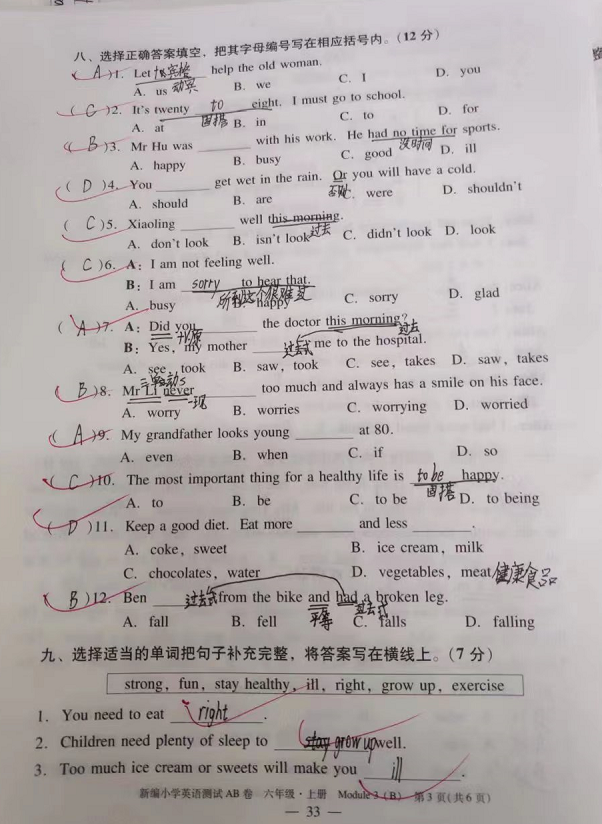 八、选择正确答案填空，把其字母编号写在相应括号内。(12 分)
( A )1. Let ______ help the old woman.
A. us 动宾 B. we C. I D. you
( C )2. It's twenty to eight, I must go to school.
A. at 固搭 B. in C. to D. for
( B )3. Mr Hu was ______ with his work. He had no time for sports.
没时间
A. happy B. busy C. good D. ill
( D )4. You ______ get wet in the rain. Or you will have a cold.
否则
A. should B. are C. were D. shouldn't
( C )5. Xiaoling ______ well this morning.
过去
A. don't look B. isn't look C. didn't look D. look
( C )6. A: I am not feeling well.
B: I am sorry to hear that.
A. busy B. happy C. sorry D. glad
( A )7. A: Did you ______ the doctor this morning?
+原 过去
B: Yes, my mother 过去式 me to the hospital.
A. see, took B. saw, took C. see, takes D. saw, takes
( B )8. Mr Li never ______ too much and always has a smile on his face.
一现
A. worry B. worries C. worrying D. worried
( A )9. My grandfather looks young ______ at 80.
A. even B. when C. if D. so
( C )10. The most important thing for a healthy life is to be happy.
固搭
A. to B. be C. to be D. to being
( D )11. Keep a good diet. Eat more ______ and less ______.
A. coke, sweet B. ice cream, milk
C. chocolates, water D. vegetables, meat 健康食品
( B )12. Ben 过去式 from the bike and had a broken leg.
平等 过去式
A. fall B. fell C. falls D. falling
九、选择适当的单词把句子补充完整，将答案写在横线上。(7 分)
strong, fun, stay healthy, ill, right, grow up, exercise
1. You need to eat right.
2. Children need plenty of sleep to stay grow up well.
3. Too much ice cream or sweets will make you ill.
新编小学英语测试 AB 卷 六年级·上册 Module 3 (B) 第 3 页(共 6 页)
— 33 —